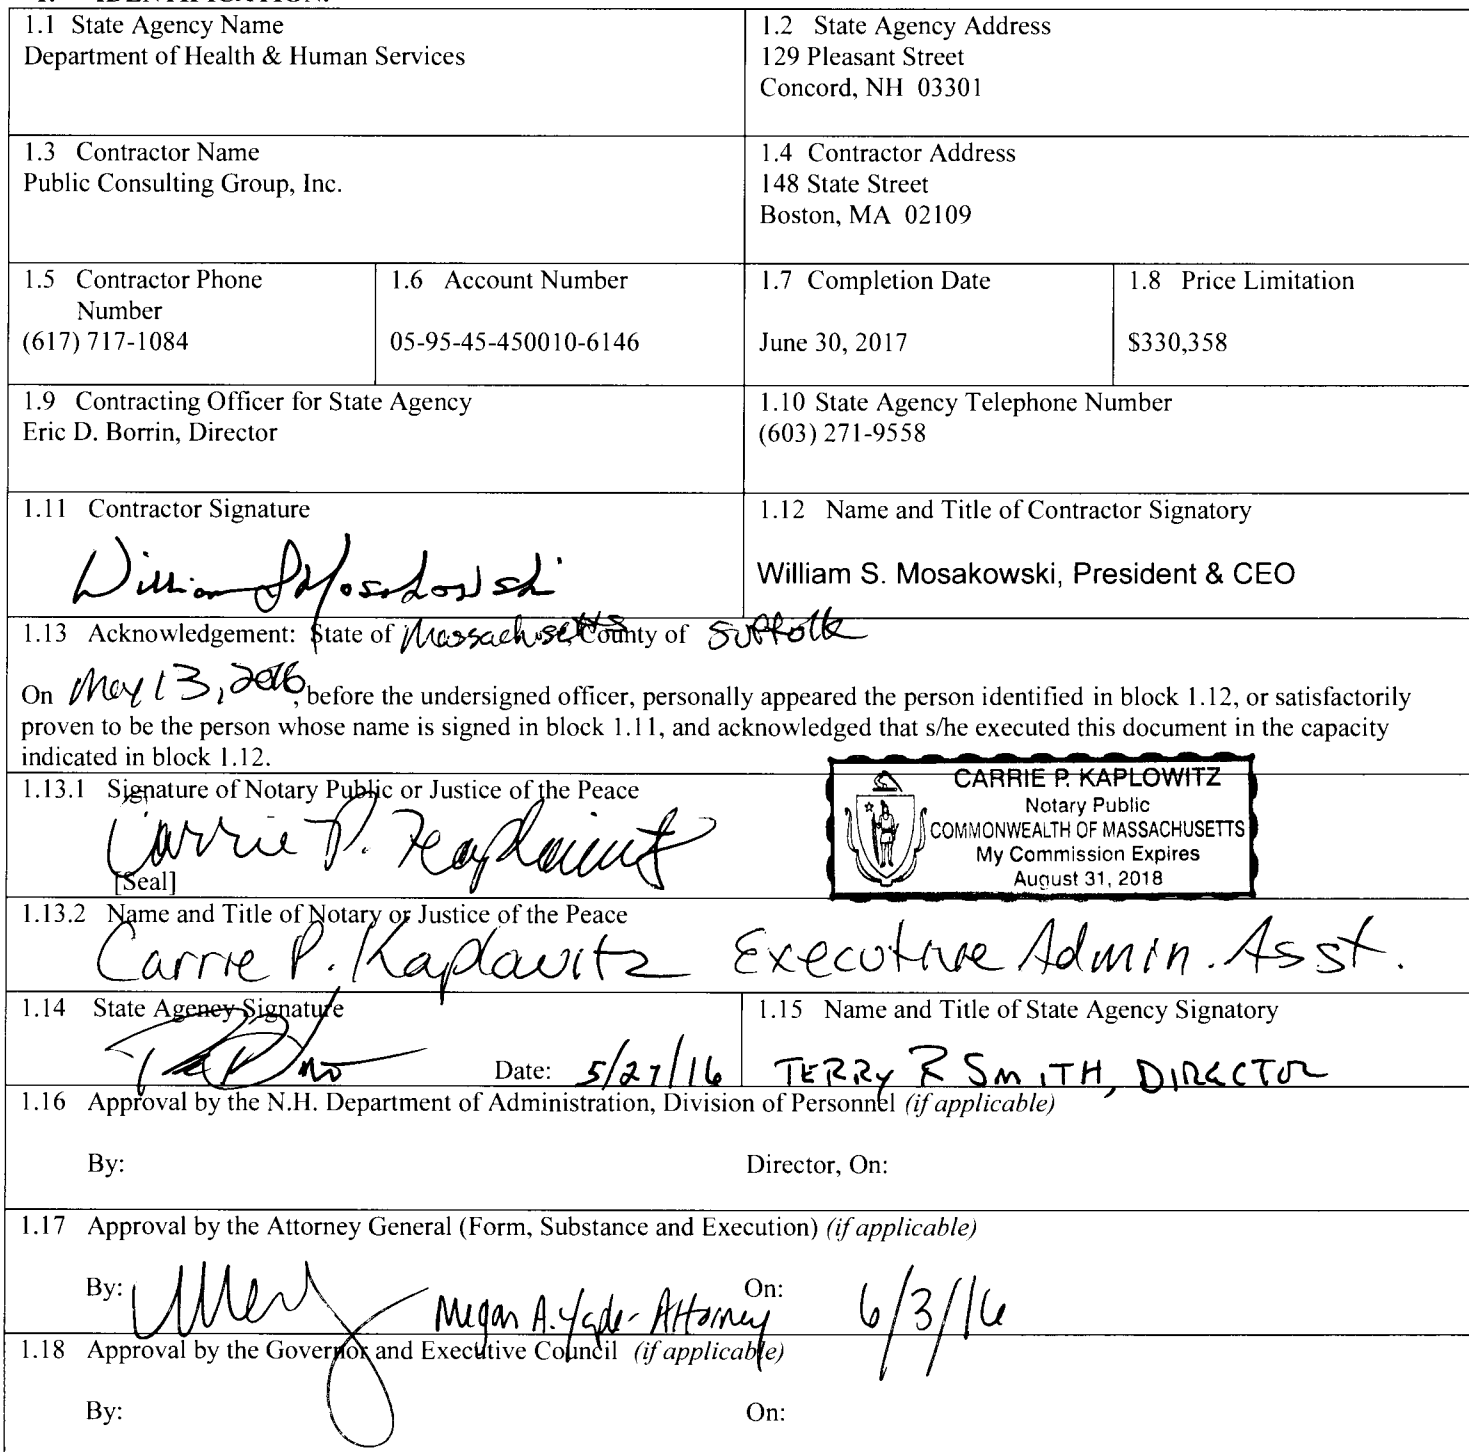 1.1 State Agency Name
Department of Health & Human Services
1.2 State Agency Address
129 Pleasant Street
Concord, NH 03301
1.3 Contractor Name
Public Consulting Group, Inc.
1.4 Contractor Address
148 State Street
Boston, MA 02109
1.5 Contractor Phone
Number
(617) 717-1084
1.6 Account Number
05-95-45-450010-6146
1.7 Completion Date
June 30, 2017
1.8 Price Limitation
$330,358
1.9 Contracting Officer for State Agency
Eric D. Borrin, Director
1.10 State Agency Telephone Number
(603) 271-9558
1.11 Contractor Signature
William S Mosakowski
1.12 Name and Title of Contractor Signatory
William S. Mosakowski, President & CEO
1.13 Acknowledgement: State of Massachusetts, County of Suffolk
On May 13, 2016, before the undersigned officer, personally appeared the person identified in block 1.12, or satisfactorily
proven to be the person whose name is signed in block 1.11, and acknowledged that s/he executed this document in the capacity
indicated in block 1.12.
1.13.1 Signature of Notary Public or Justice of the Peace
Carrie P. Kaplowitz
[Seal]
CARRIE P. KAPLOWITZ
Notary Public
COMMONWEALTH OF MASSACHUSETTS
My Commission Expires
August 31, 2018
1.13.2 Name and Title of Notary or Justice of the Peace
Carrie P. Kaplowitz Executive Admin. Asst.
1.14 State Agency Signature
Date: 5/27/16
1.15 Name and Title of State Agency Signatory
TERRY R SMITH, DIRECTOR
1.16 Approval by the N.H. Department of Administration, Division of Personnel (if applicable)
By:
Director, On:
1.17 Approval by the Attorney General (Form, Substance and Execution) (if applicable)
By: Megan A. - Attorney On: 6/3/16
1.18 Approval by the Governor and Executive Council (if applicable)
By:
On: